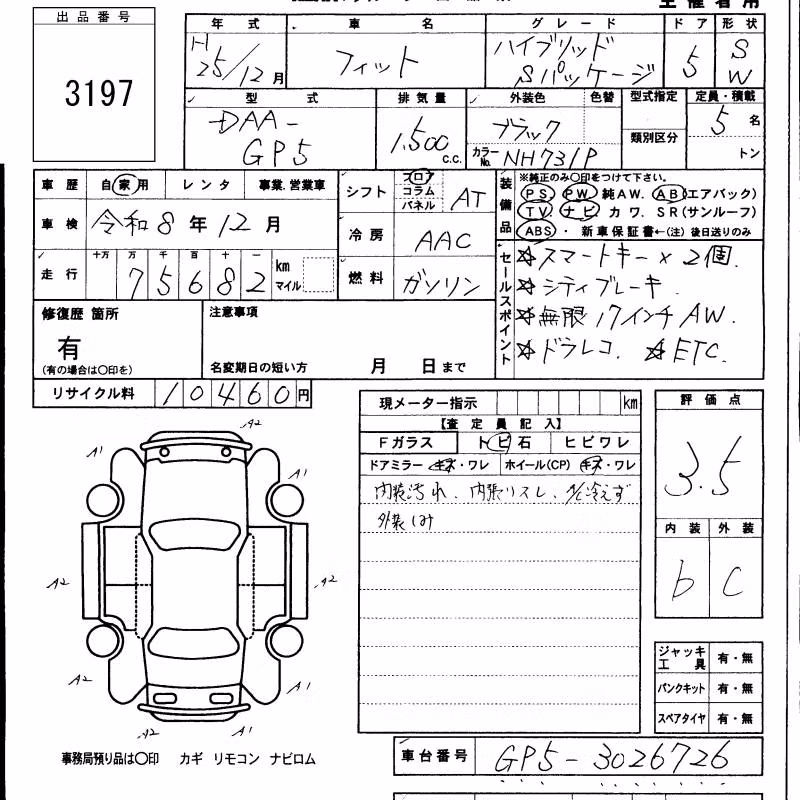 出品番号
3197
年式 車名 グレード ドア 形状
H25/12月 フィット ハイブリッド Sパッケージ 5 SW
型式 排気量 外装色 色替 型式指定 定員・積載
DAA-GP5 1,500 c.c. ブラック 5名
カラーNo. NH731P 類別区分 トン
車歴 自家用 レンタ 事業.営業車
シフト フロア コラム パネル AT
装備品 ※純正のみ○印をつけて下さい。
PS. PW. 純AW. AB(エアバック)
TV. ナビ. カワ. SR(サンルーフ)
ABS・ 新車保証書←(注) 後日送りのみ
車検 令和8年12月
冷房 AAC
走行 十万 万 千 百 十 一
75682 km マイル
燃料 ガソリン
セールスポイント
☆スマートキー×2個.
☆シティブレーキ.
☆無限17インチAW.
☆ドラレコ. ☆ETC.
修復歴 箇所
有
(有の場合は○印を)
注意事項
名変期日の短い方 月 日まで
リサイクル料 10460円
現メーター指示 km
【査定員記入】
Fガラス トビ石 ヒビワレ
ドアミラー キズ・ワレ ホイール(CP) キズ・ワレ
内装汚れ、内張りスレ、A/C冷えず
評価点
3.5
内装 外装
b C
A2
A1
A1
A2
A2
A2
A1
A2
A1
ジャッキ 工具 有・無
パンクキット 有・無
スペアタイヤ 有・無
事務局預り品は○印 カギ リモコン ナビロム
車台番号 GP5-3026726